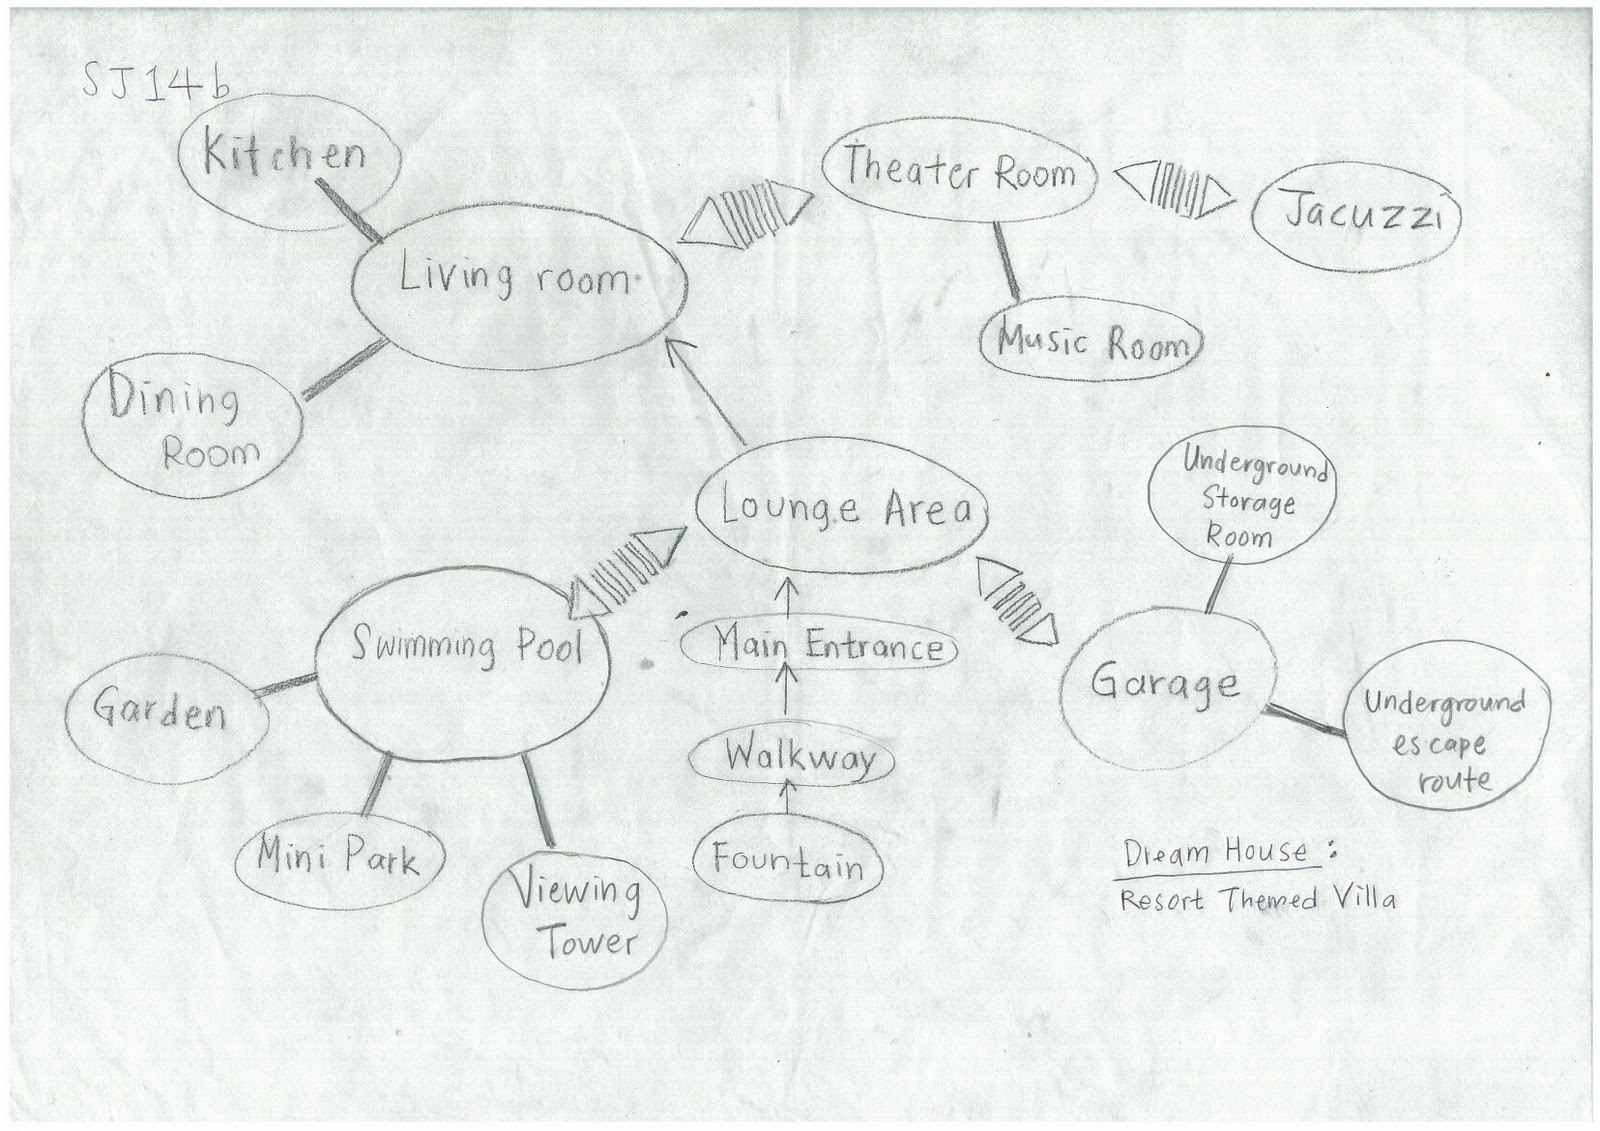 SJ14b
Kitchen
Theater Room
Jacuzzi
Living room
Music Room
Dining
Room
Underground
Storage
Room
Lounge Area
Swimming Pool
Main Entrance
Garage
Garden
Underground
escape
route
Walkway
Mini Park
Fountain
Viewing
Tower
Dream House :
Resort Themed Villa